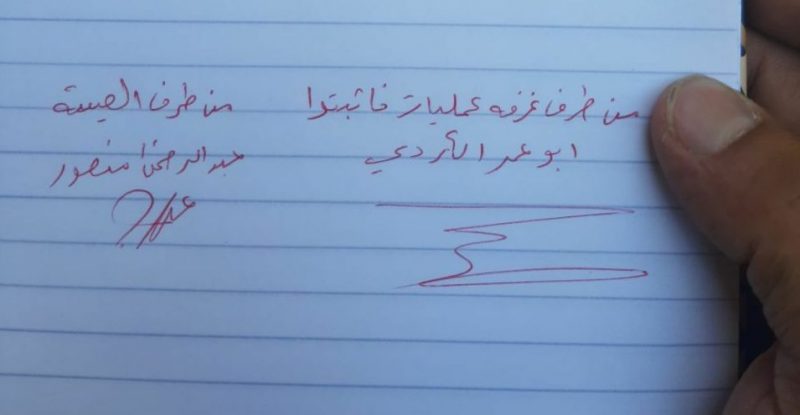 من طرف غرفه عمليات فاثبتوا
ابو عمر
من طرف الهيئة
عبد الرحمن منصور